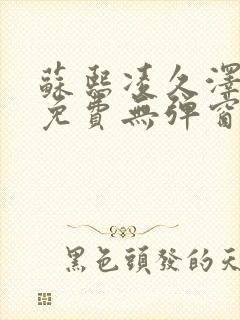 蘇熙凌久澤
免費無彈窗
黑色頭發的天